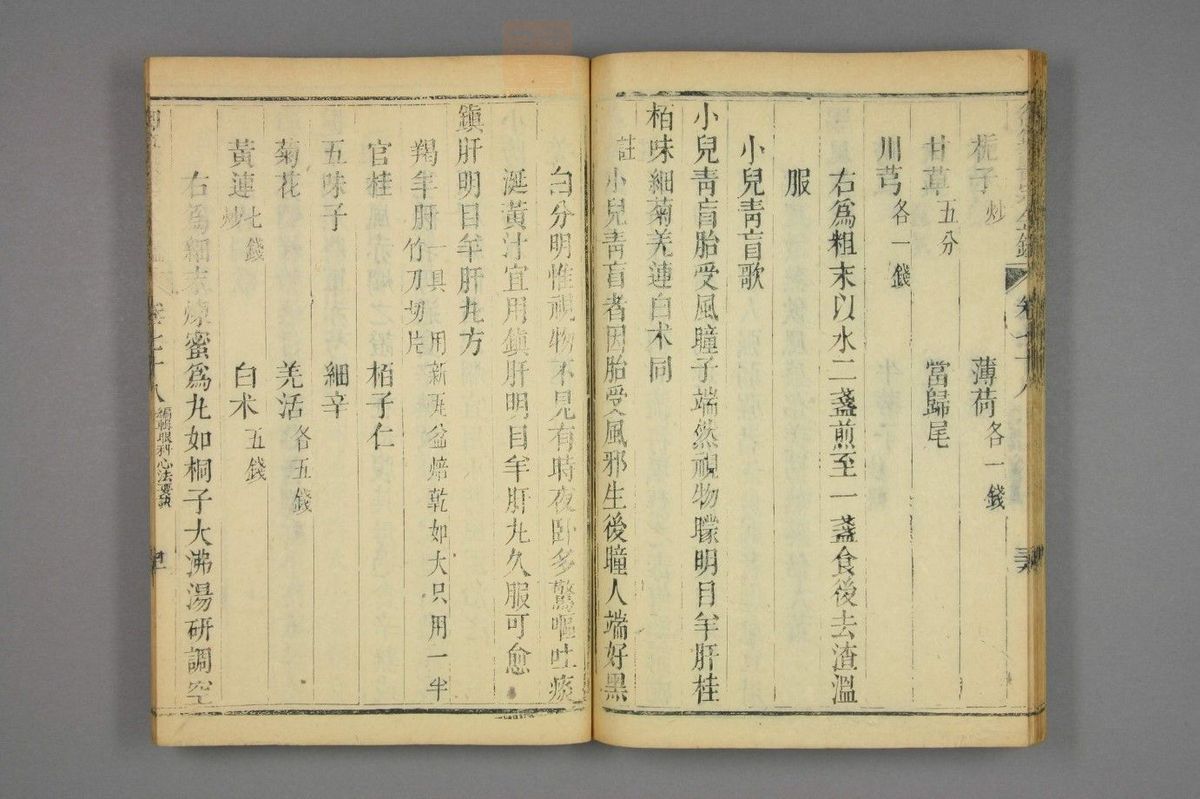 梔子炒　薄荷各一錢
甘草五分　當歸尾
川芎各一錢
右爲粗末以水二盞煎至一盞食後去渣溫
服
小兒靑盲歌
小兒靑盲胎受風瞳子端然視物矇明目羊肝桂
栢味細菊羌連白朮同
註小兒靑盲者因胎受風邪生後瞳人端好黑
白分明惟視物不見有時夜卧多驚嘔吐痰
涎黃汁宜用鎭肝明目羊肝丸久服可愈
鎭肝明目羊肝丸方
羯羊肝一具用新瓦盆焙乾如大只用一半
竹刀切片
官桂　栢子仁
五味子　細辛
菊花　羌活各五錢
黃連七錢炒　白朮五錢
右爲細末煉蜜爲丸如桐子大沸湯硏調空
卷七十八
編輯眼科心法要訣